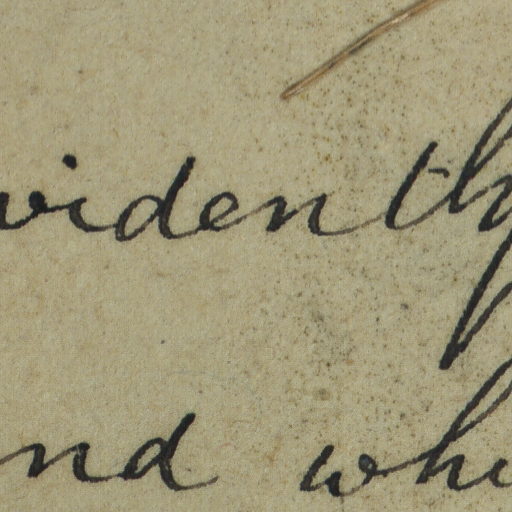 vidently
nd whi